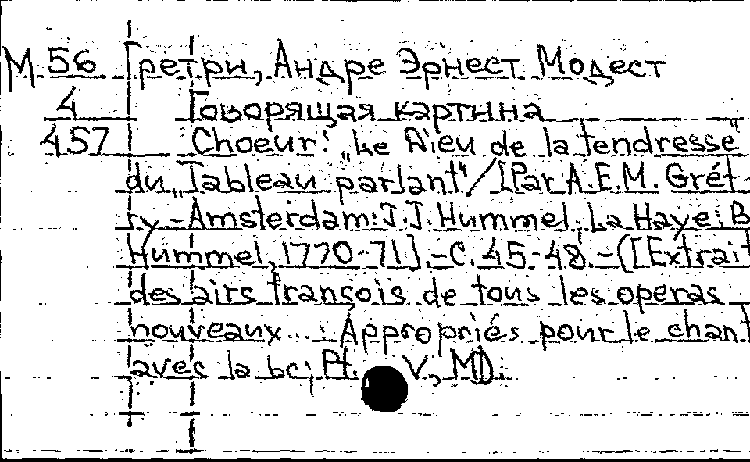 М 56 Гретри, Андре Эрнест Модест
4 Говорящая картина
457 Choeur: „Le Dieu de la tendresse"
du „Tableau parlant"/[Par A.E.M. Grét-
ry.-Amsterdam: J.J. Hummel; La Haye: B.
Hummel, 1770-71].-C. 45-48.-([Extrait
des airs françois de tous les operas
nouveaux... : Appropriés pour le chant
avec la bc; Pt. V, MD.